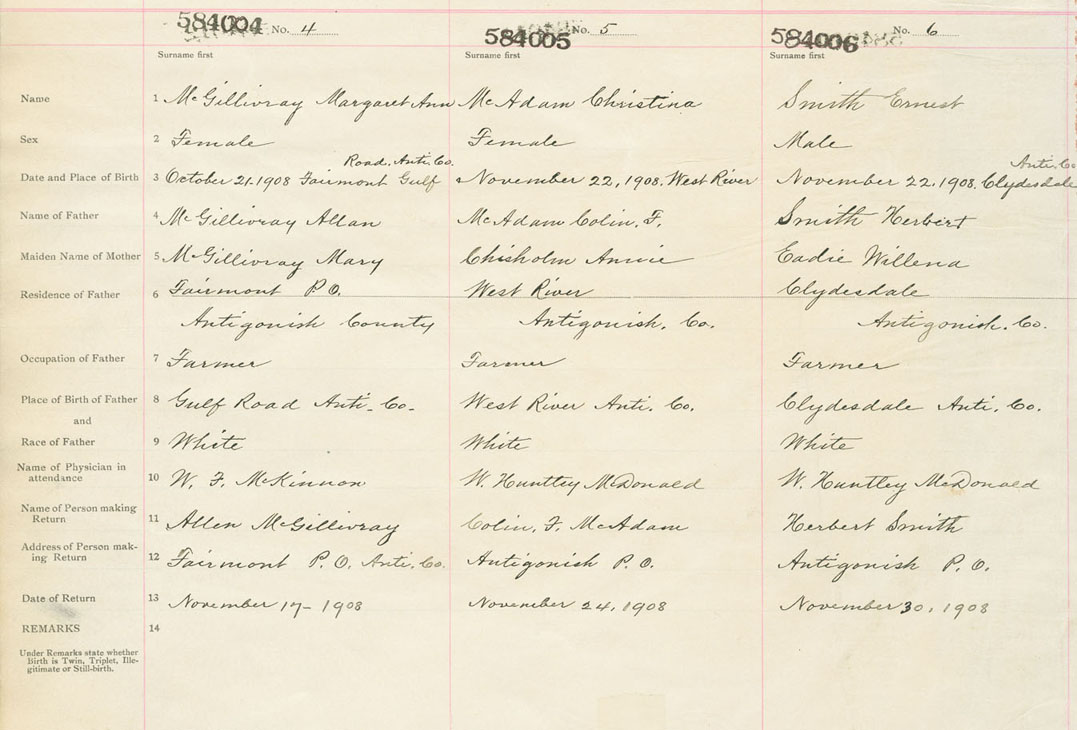 584004 No. 4 584005 No. 5 584006 No. 6
Surname first Surname first Surname first
Name 1 McGillivray Margaret Ann McAdam Christina Smith Ernest
Sex 2 Female Female Male
Road, Anti. Co. Anti. Co.
Date and Place of Birth 3 October 21. 1908 Fairmont Gulf November 22, 1908. West River November 22. 1908. Clydesdale
Name of Father 4 McGillivray Allan McAdam Colin. F. Smith Herbert
Maiden Name of Mother 5 McGillivray Mary Chisholm Annie Eadie Willena
Residence of Father 6 Fairmont P.O. West River Clydesdale
Antigonish County Antigonish. Co. Antigonish. Co.
Occupation of Father 7 Farmer Farmer Farmer
Place of Birth of Father 8 Gulf Road Anti. Co. West River Anti. Co. Clydesdale Anti. Co.
and
Race of Father 9 White White White
Name of Physician in
attendance 10 W. F. McKinnon W. Huntley McDonald W. Huntley McDonald
Name of Person making
Return 11 Allen McGillivray Colin. F. McAdam Herbert Smith
Address of Person mak-
ing Return 12 Fairmont P. O. Anti. Co. Antigonish P.O. Antigonish P. O.
Date of Return 13 November 17 - 1908 November 24, 1908 November 30, 1908
REMARKS 14
Under Remarks state whether
Birth is Twin, Triplet, Ille-
gitimate or Still-birth.